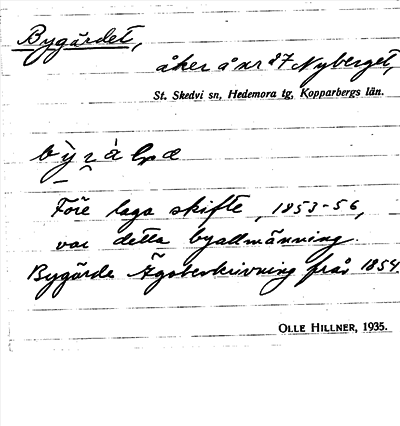 Bygärdet,
åker å nr 87 Nyberget,
St. Skedvi sn, Hedemora tg, Kopparbergs län.
Före laga skifte, 1853-56,
var detta byallmänning.
Bygärda Ägobeskrivning från 1854.
OLLE HILLNER, 1935.